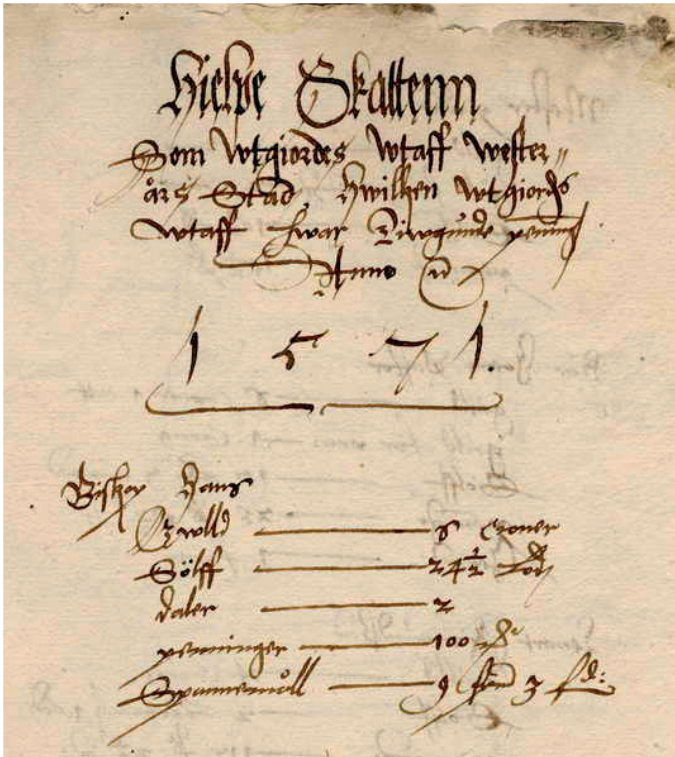 Hielpe Skattenn
Som wtgiordes wtaff wester„
års Stad, Hwilken wtgiords
wtaff hwar Tiwgunde pening
Anno
1571.
Biskop Hans
Gwlld — 6 Croner
Sölff — 24 1/2 Lod
daler — 2
penninger — 100
Spannemåll — 9 3